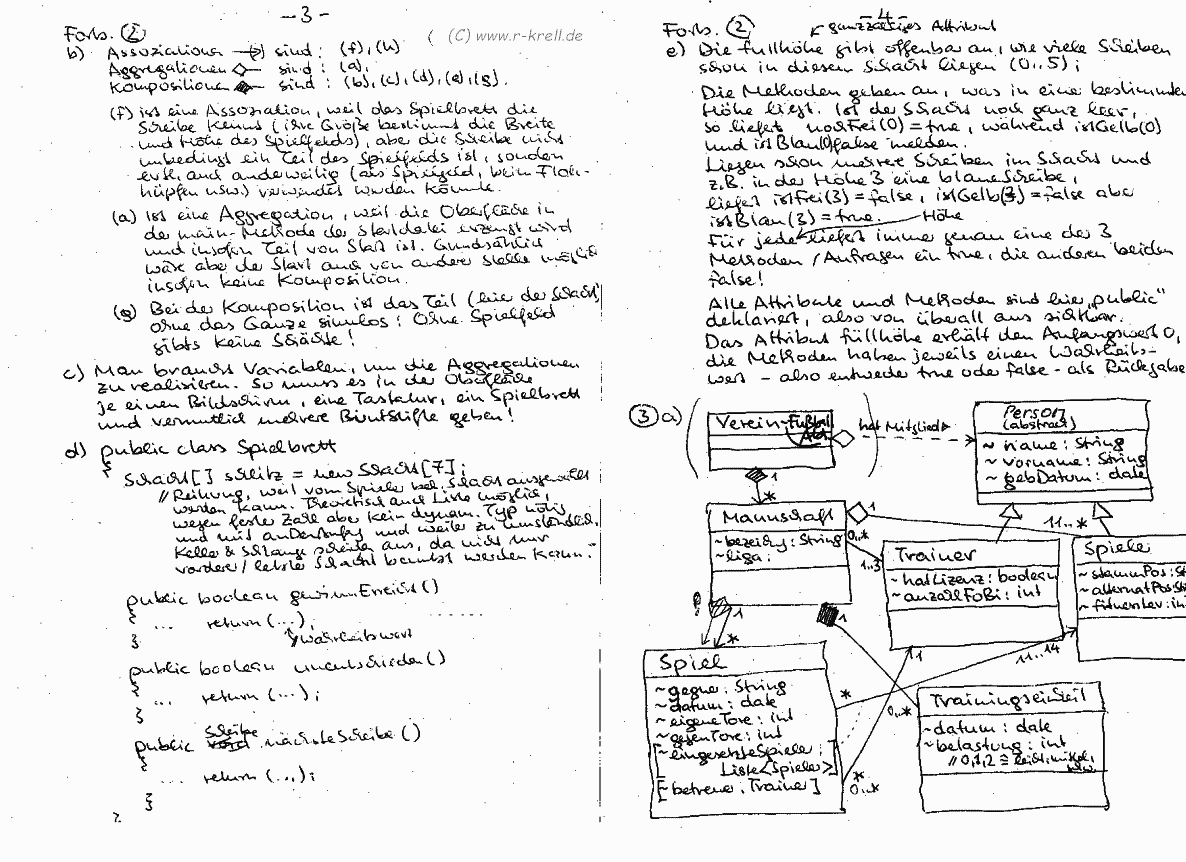 – 3 –
Forts. (2)
( (C) www.r-krell.de
b) Assoziationen → sind : (f), (h)
Aggregationen ◇— sind : (a),
Kompositionen ◆— sind : (b), (c), (d), (e), (g).
(f) ist eine Assoziation, weil das Spielbrett die
Scheibe kennt (ihre Größe bestimmt die Breite
und Höhe des Spielfelds), aber die Scheibe nicht
unbedingt ein Teil des Spielfelds ist, sondern
evtl. auch anderweitig (als Spielgeld, beim Floh-
hüpfen usw.) verwendet werden könnte.
(a) ist eine Aggregation, weil die Oberfläche in
der main-Methode der Startdatei erzeugt wird
und insofern Teil von Start ist. Grundsätzlich
wäre aber der Start auch von anderer Stelle möglich
insofern keine Komposition.
(g) Bei der Komposition ist das Teil (hier der Schacht)
ohne das Ganze sinnlos: Ohne Spielfeld
gibts keine Schächte!
c) Man braucht Variablen, um die Aggregationen
zu realisieren. So muss es in der Oberfläche
je einen Bildschirm, eine Tastatur, ein Spielbrett
und vermutlich mehrere Buntstifte geben!
d) public class Spielbrett
{
Schacht[] schlitz = new Schacht[7];
// Reihung, weil vom Spieler bel. Schacht ausgewählt
werden kann. Theoretisch auch Liste möglich,
wegen fester Zahl aber kein dynam. Typ nötig
und mit anDerAnfg und weiter zu umständlich.
Keller & Schlange scheiden aus, da nicht nur
vorderer/letzter Schacht benutzt werden kann.
public boolean gewinnErreicht()
{ ... return (...);
} Wahrheitswert
public boolean unentschieden()
{
... return (...);
}
public Scheibe nächsteScheibe()
{
... return (...);
}
– 4 –
Forts. (2)
ganzzahliges Attribut
e) Die füllhöhe gibt offenbar an, wie viele Scheiben
schon in diesem Schacht liegen (0..5);
Die Methoden geben an, was in einer bestimmten
Höhe liegt. Ist der Schacht noch ganz leer,
so liefert nochFrei(0) = true, während istGelb(0)
und istBlau(0) false melden.
Liegen schon mehrere Scheiben im Schacht und
z.B. in der Höhe 3 eine blaue Scheibe,
liefert istFrei(3) = false, istGelb(3) = false aber
istBlau(3) = true.
Höhe
Für jede liefert immer genau eine der 3
Methoden / Anfragen ein true, die anderen beiden
false!
Alle Attribute und Methoden sind hier „public"
deklariert, also von überall aus sichtbar.
Das Attribut füllhöhe erhält den Anfangswert 0,
die Methoden haben jeweils einen Wahrheits-
wert – also entweder true oder false – als Rückgabe
(3) a)
Verein-Fußball
Abt.
hat Mitglied
Person
(abstract)
~ name : String
~ vorname : String
~ gebDatum : date
1
*
Mannschaft
~ bezeichg : String
~ liga :
1
11..*
0..*
1..3
Trainer
~ hatLizenz : boolean
~ anzahlFoBi : int
Spieler
~ stammPos : St
~ alternatPos : St
~ fitnessLev : in
?
1
*
1
Spiel
~ gegner : String
~ datum : date
~ eigeneTore : int
~ gegenTore : int
[~ eingesetzteSpieler :
Liste<Spieler>]
[~ betreuer : Trainer]
*
11..14
1
0..*
*
0..*
Trainingseinheit
~ datum : date
~ belastung : int
// 0,1,2 ≙ leicht, mittel,